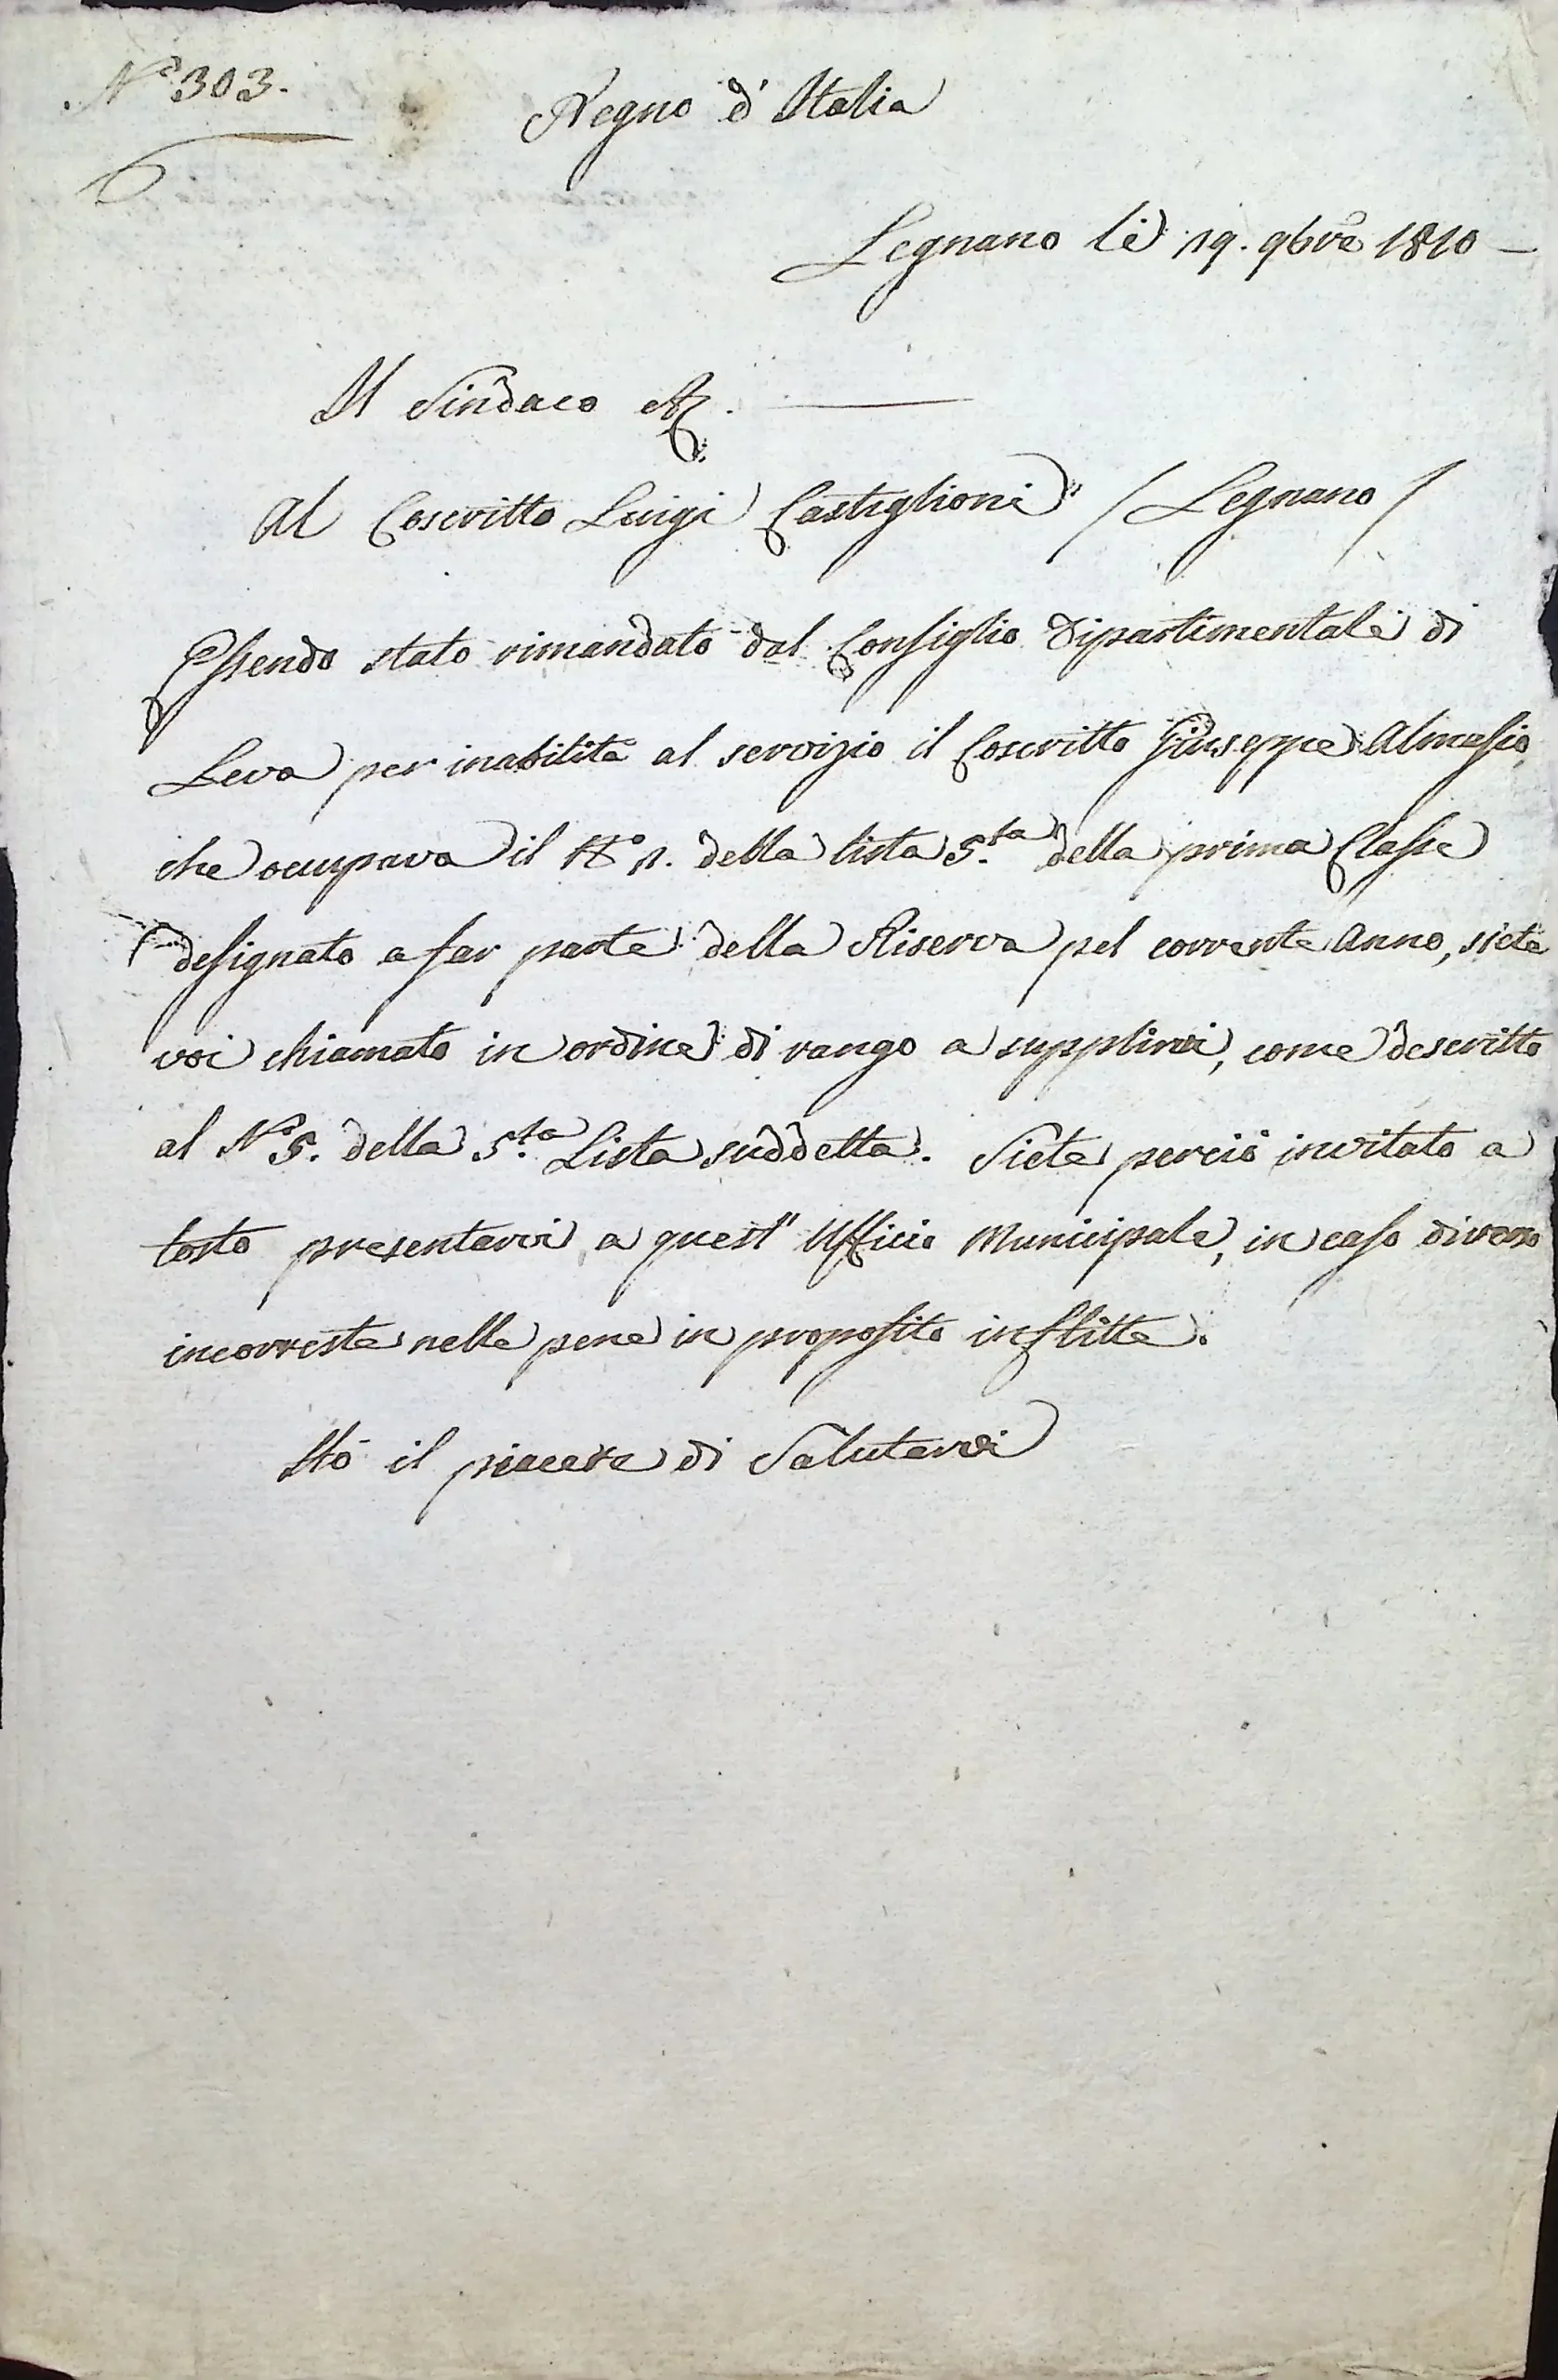 N.º 303.
Regno d' Italia
Legnano li 19. 9bre 1810
Il Sindaco &c.
Al Coscritto Luigi Castiglioni / Legnano /
Essendo stato rimandato dal Consiglio Dipartimentale di
Leva per inabilità al servizio il Coscritto Giuseppe Almasio,
che ocupava il N.º 1. della lista 5.ta della prima Classe
designato a far parte della Riserva pel corrente Anno, siete
voi chiamato in ordine di rango a supplirvi, come descritto
al N.º 5. della 5.ta Lista suddetta. Siete perciò invitato a
tosto presentarvi a quest' Ufficio Municipale, in caso diverso
incorreste nelle pene in proposito inflitte.
Hò il piacere di Salutarvi